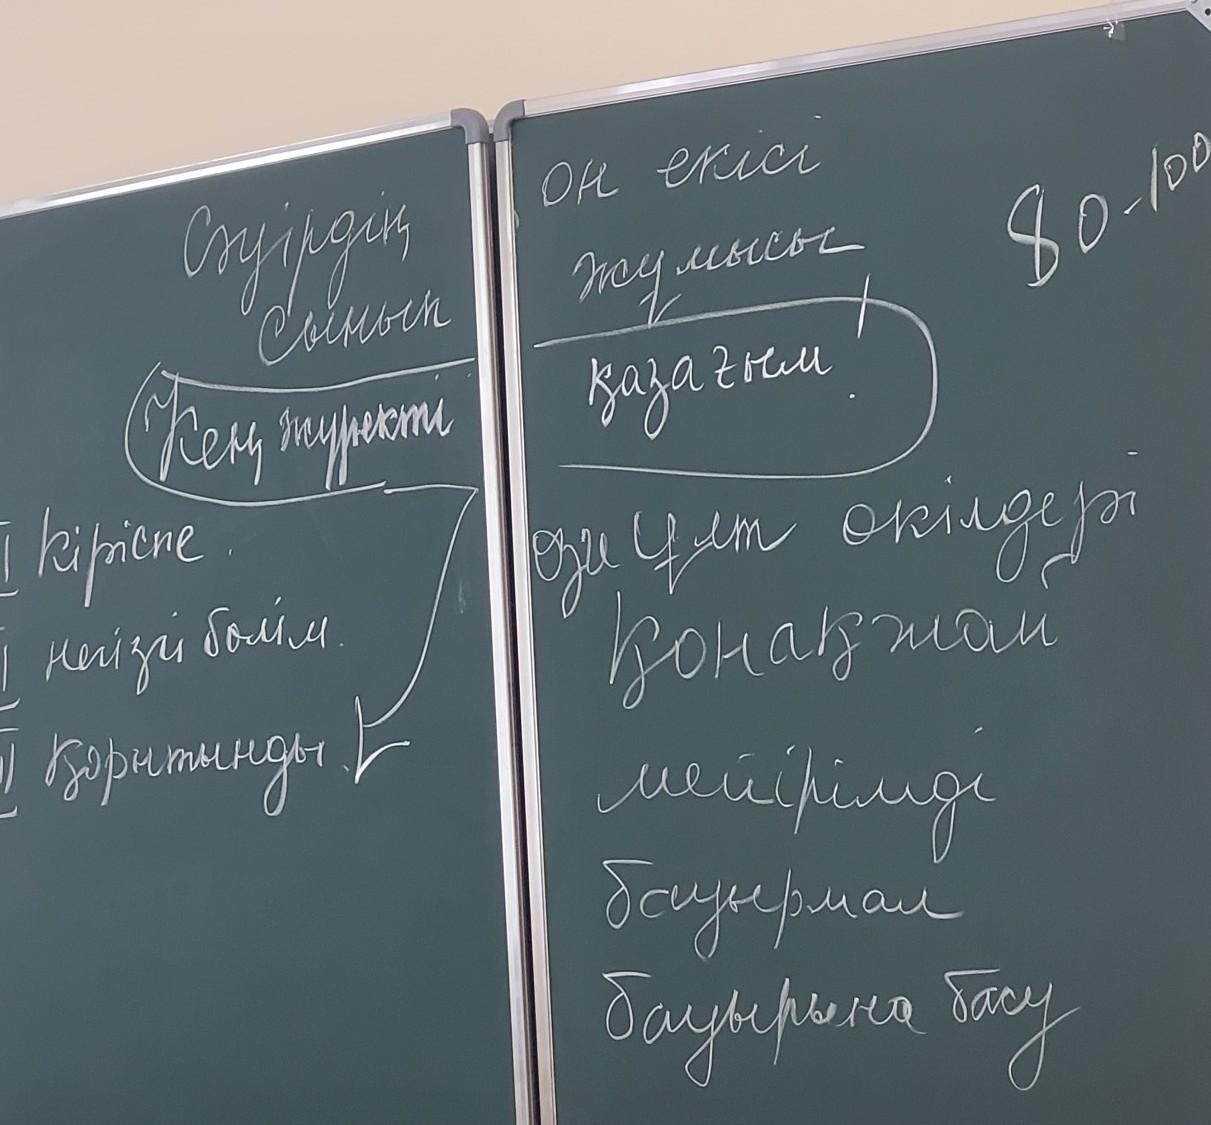 Сәуірдің он екісі
Сынып жұмысы
80-100
Кең жүректі қазағым!
I кіріспе.
II негізгі бөлім.
III қорытынды.
өзге ұлт өкілдері
қонақжай
мейірімді
бауырмал
бауырына басу